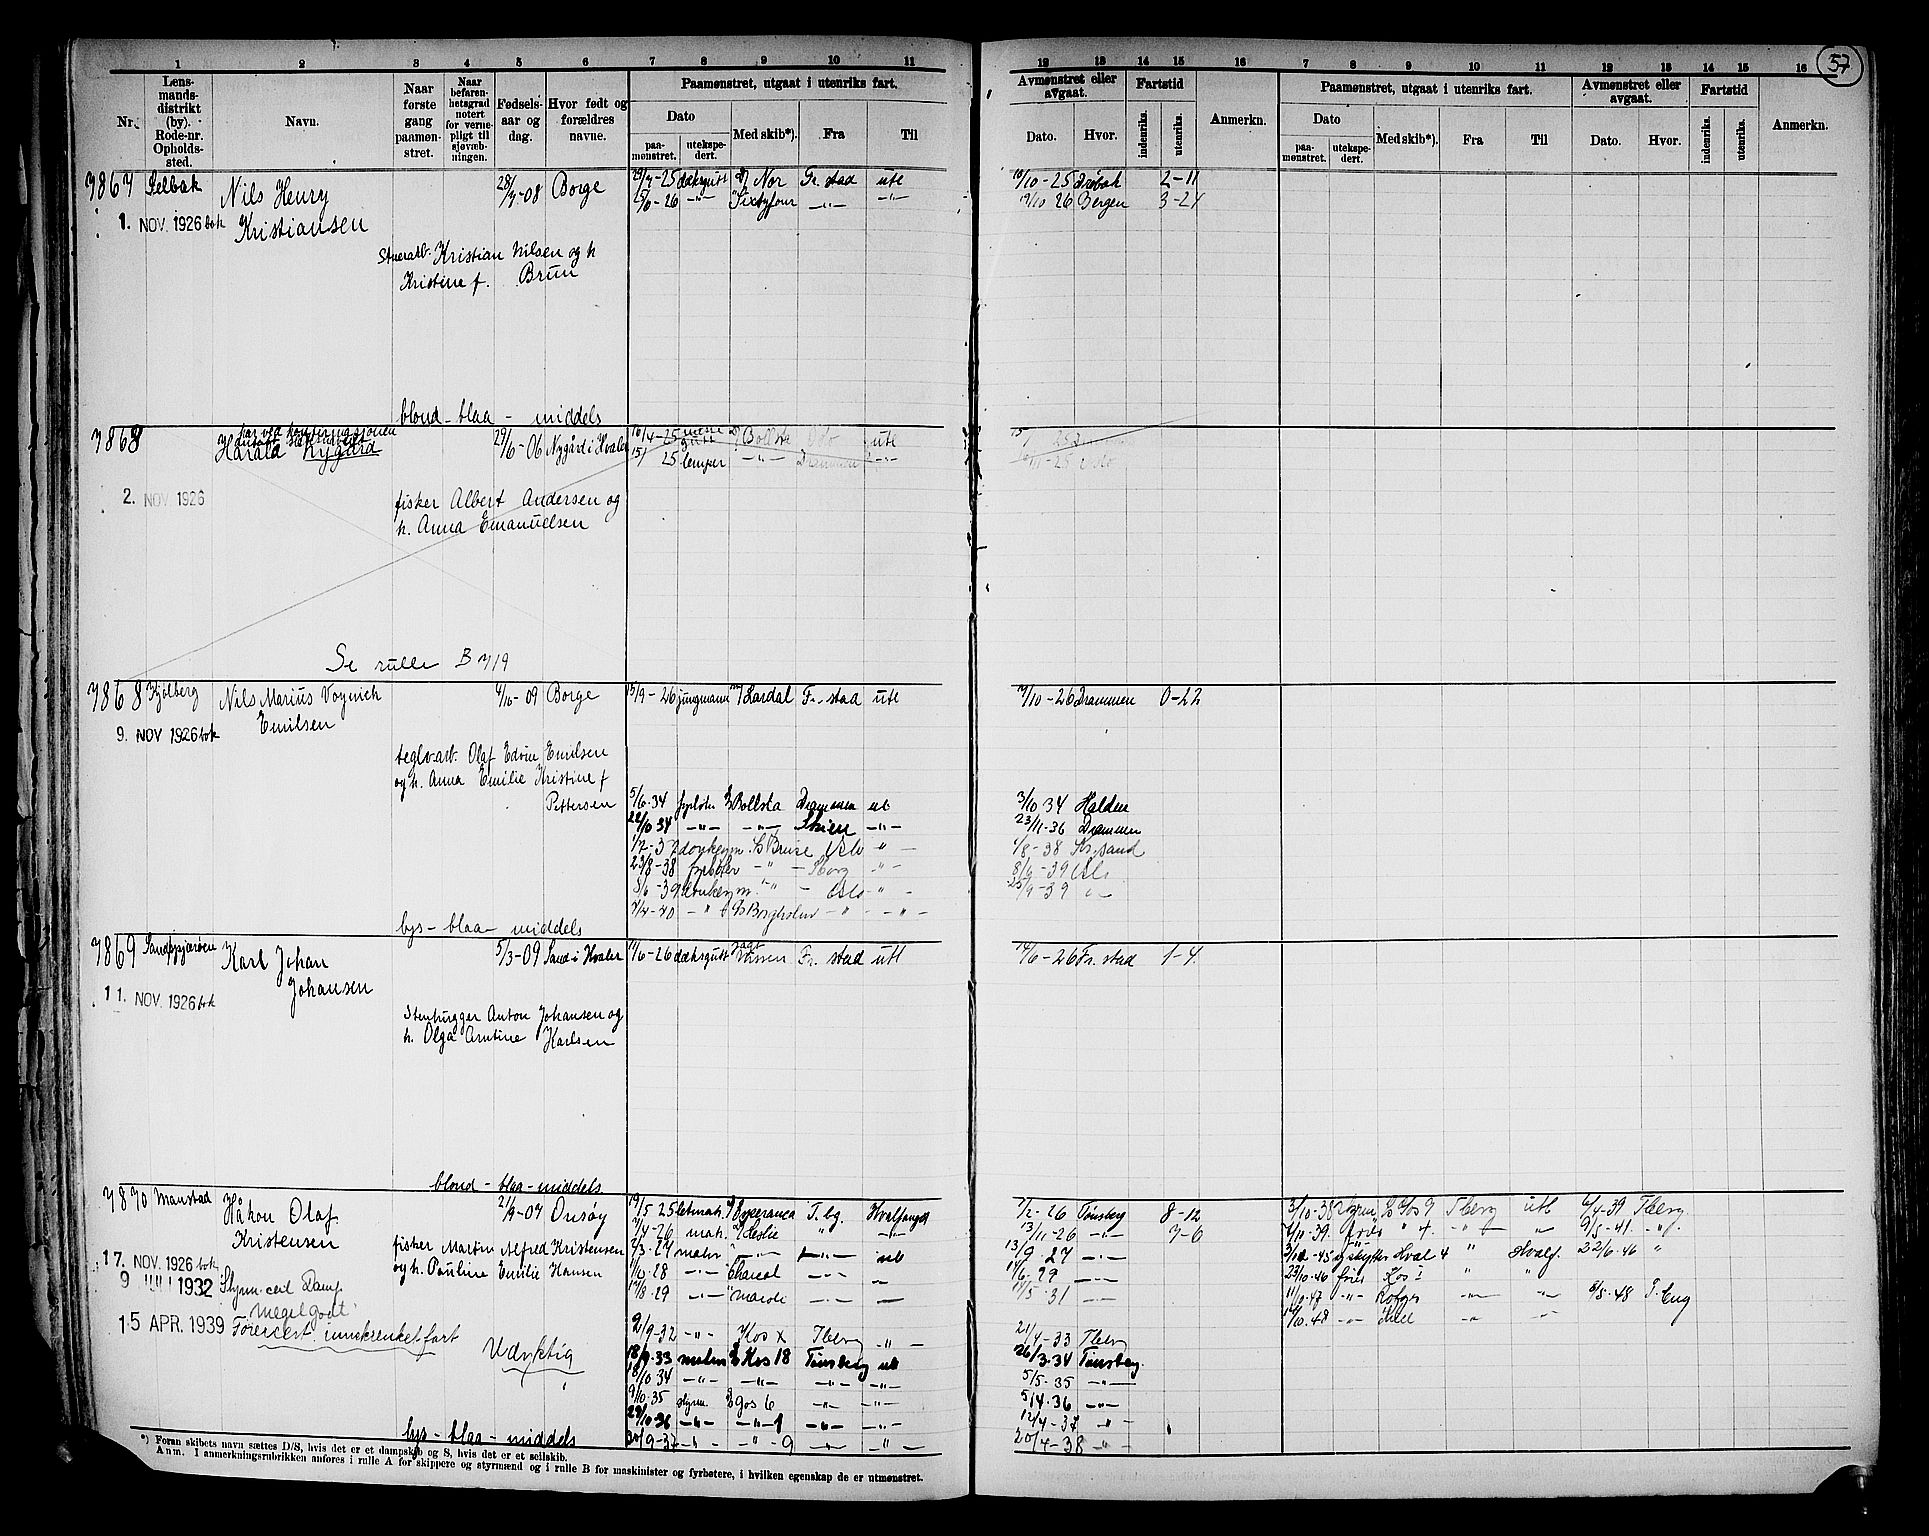 57
1 2 3 4 5 6 7 8 9 10 11
Nr.
Lens-
mands-
distrikt
(by).
Rode-nr.
Opholds-
sted.
Navn.
Naar
første
gang
paamøn-
stret.
Naar
befaren-
hetsgrad
notert
for verne-
pligt til
sjøvæb-
ningen.
Fødsels-
aar og
dag.
Hvor født og
forældres
navne.
Paamønstret, utgaat i utenriks fart.
Dato
paa-
mønstret.
utekspe-
dert.
Med skib*).
Fra
Til
12 13 14 15 16 7 8 9 10 11 12 13 14 15 16
Avmønstret eller
avgaat.
Dato.
Hvor.
Fartstid
indenriks.
utenriks.
Anmerkn.
Paamønstret, utgaat i utenriks fart.
Dato
paa-
mønstret.
utekspe-
dert.
Med skib*).
Fra
Til
Avmønstret eller
avgaat.
Dato.
Hvor.
Fartstid
indenriks.
utenriks.
Anmerkn.
7867 Selbak Nils Henry 28/7-08 Borge 29/7-25 dæksgutt Nor Fr.stad ute 10/10-25 Drøbak 2-11
1. NOV. 1926 bok Kristiansen -"- Sixtyfour -"- -"- 26 Bergen 3-21
Kristian Nilsen og h
Kristine f. Brun
blond - blaa - middels
7868 Harald Nygård 29/6-06 Nygård i Hvaler 16/4-25 Bollsta Oslo ute
15/ 25 lemper -"- Drammen -"- 25 Oslo
2. NOV 1926
fisker Albert Andersen og
h. Anna Emanuelsen
Se rulle B 719
7868 Kjølberg Nils Marius Voynich 09 Borge 15/9-26 jungmann Hardal Fr.stad ute 7/10-26 Drammen 0-22
9. NOV 1926 bok Emilsen
teglv.arb. Olaf Edvin Emilsen
og h. Anna Emilie Kristine f
Pettersen
5/6.34 Bollsta Drammen ut 3/10 34 Halden
22/10 34 -"- -"- Skien -"- 23/11-36 Drammen
1/2-37 Oslo -"- 38 Kr.sand
23/8-38 -"- -"- 8/6-39 Oslo
8/6-39 -"- Oslo -"- 25/9-39 -"-
4/4-40 -"- Borgholm -"- -"-
lys - blaa - middels
7869 Karl Johan 5/3-09 Sand i Hvaler 11/6-26 dæksgutt Fr.stad utl 14/6-26 Fr.stad 1-4
11. NOV. 1926 bok Johansen
Stenhugger Anton Johansen og
h. Olga Arntine Karlsen
blond - blaa - middels
7870 Manstad Håkon Olaf 21/9-07 Onsøy 19/5-25 Esperanca T.bg. Hvalfangst 7/2-26 Tønsberg 8-12 3/10-38 Kos 9 Tberg utl 6/4-39 Tberg
Kristensen 26 matr. Leslie " -"- 13/11-26 -"- 7-6 39. " 4. -"- " 9/5-41. -"-
17. NOV. 1926 bok fisker Martin Alfred Kristensen 27 matr " -"- -"- ut 13/9-27 -"- 45 skytter Hval 4 " Hvalf. 22/6-46 "
og h. Pauline Emilie Hansen 28 -"- -"- 29 -"- 23/10-46 Kos I " "
9 1932 Styrm. cert Damp 29 -"- -"- -"- 31 -"- 11/10-47 -"- -"- -"- 9/5-48
Meget godt 48 -"- -"-
15 APR. 1939 Førercert innskrenket fart
Udyktig
21/9-32 -"- Kos X Tberg -"- 21/4-33 Tberg
18/9.33 matr. Kos 18 Tønsberg ut 26/3.34 Tønsberg
18/10.34 -"- -"- -"- -"- 5/5-35 -"-
9/10.35 styrm Kos 6 -"- -"- 5/4-36 -"-
29/10-36 -"- -"- 1 -"- -"- 12/4-37 -"-
30/9-37 -"- -"- 9 -"- -"- 20/4-38 -"-
lys - blaa - middels
*) Foran skibets navn sættes D/S, hvis det er et dampskib og S, hvis det er et seilskib.
Anm. I anmerkningsrubrikken anføres i rulle A for skippere og styrmænd og i rulle B for maskinister og fyrbøtere, i hvilken egenskap de er utmønstret.